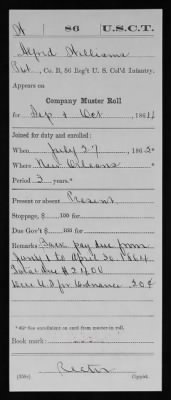 W 86 U.S.C.T.
Alfred Williams
Pvt, Co. B, 86 Reg't U. S. Col'd Infantry.
Appears on
Company Muster Roll
for Sep & Oct, 1864
Joined for duty and enrolled:
When July 27, 186
Where New Orleans *
Period 3 years.*
Present or absent Present
Stoppage, $ 100 for
Due Gov't $ 100 for
Remarks: Back pay due from
Jany 1 to April 30 1864
Total due $
Due U S for Ordnance 20¢
*See enrollment on card from muster-in roll.
Book mark:
Copyist.